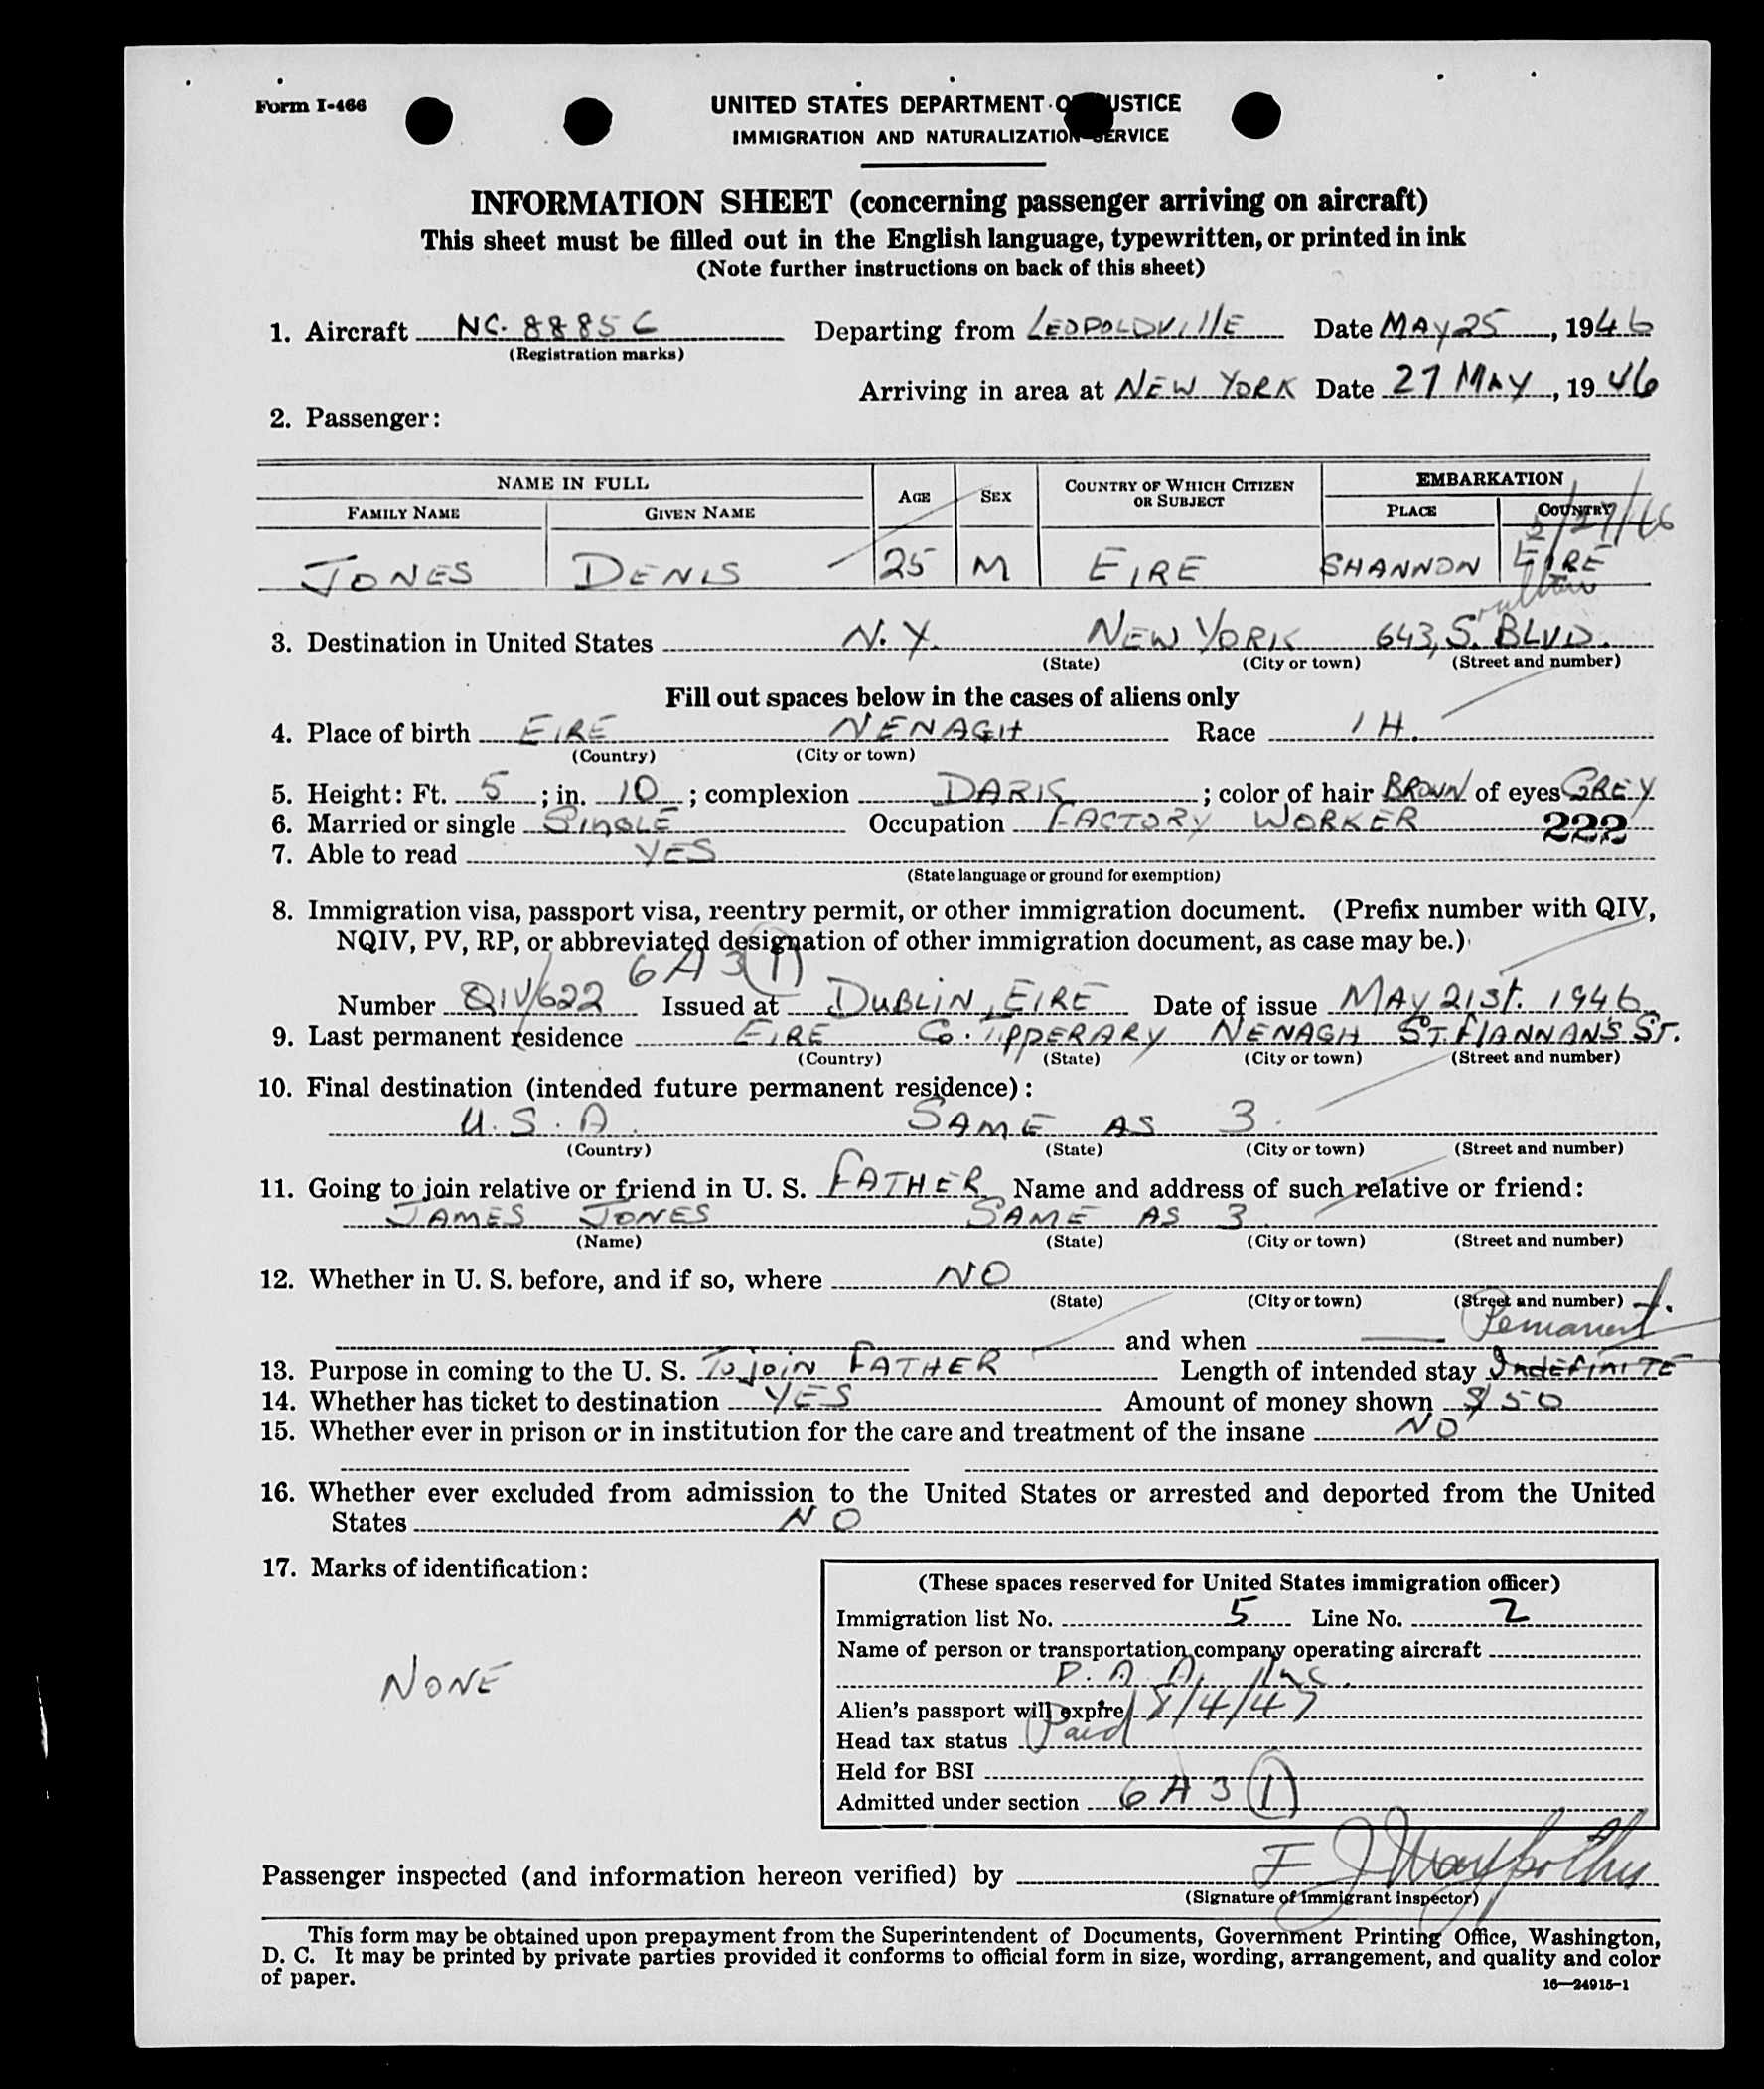 Form I-466
UNITED STATES DEPARTMENT OF JUSTICE
IMMIGRATION AND NATURALIZATION SERVICE
INFORMATION SHEET (concerning passenger arriving on aircraft)
This sheet must be filled out in the English language, typewritten, or printed in ink
(Note further instructions on back of this sheet)
1. Aircraft NC. 8885 C Departing from LEOPOLDVIllE Date MAY 25, 1946
(Registration marks)
Arriving in area at NEW YORK Date 27 MAY, 1946
2. Passenger:
NAME IN FULL AGE SEX COUNTRY OF WHICH CITIZEN OR SUBJECT EMBARKATION
FAMILY NAME GIVEN NAME PLACE COUNTRY
5/27/46
JONES DENIS 25 M EIRE SHANNON EIRE
3. Destination in United States N.Y. NEW YORK 643, S. BLVD.
(State) (City or town) (Street and number)
Fill out spaces below in the cases of aliens only
4. Place of birth EIRE NENAGH Race IH.
(Country) (City or town)
5. Height: Ft. 5; in. 10; complexion DARK; color of hair BROWN of eyes GREY
6. Married or single SINGLE Occupation FACTORY WORKER 222
7. Able to read YES
(State language or ground for exemption)
8. Immigration visa, passport visa, reentry permit, or other immigration document. (Prefix number with QIV,
NQIV, PV, RP, or abbreviated designation of other immigration document, as case may be.)
6A3(1)
Number QIV/622 Issued at DUBLIN, EIRE Date of issue MAY 21st. 1946
9. Last permanent residence EIRE Co. TIPPERARY NENAGH ST. FLANNAN'S ST.
(Country) (State) (City or town) (Street and number)
10. Final destination (intended future permanent residence):
U.S.A. SAME AS 3.
(Country) (State) (City or town) (Street and number)
11. Going to join relative or friend in U. S. FATHER Name and address of such relative or friend:
JAMES JONES SAME AS 3.
(Name) (State) (City or town) (Street and number)
12. Whether in U. S. before, and if so, where NO
(State) (City or town) (Street and number)
and when —— Permanent
13. Purpose in coming to the U. S. To join FATHER Length of intended stay INDEFINITE
14. Whether has ticket to destination YES Amount of money shown $50
15. Whether ever in prison or in institution for the care and treatment of the insane NO
16. Whether ever excluded from admission to the United States or arrested and deported from the United
States NO
17. Marks of identification:
NONE
(These spaces reserved for United States immigration officer)
Immigration list No. 5 Line No. 2
Name of person or transportation company operating aircraft
P. A. A. Inc.
Alien's passport will expire 8/4/47
Head tax status Paid
Held for BSI
Admitted under section 6A3(1)
Passenger inspected (and information hereon verified) by
(Signature of immigrant inspector)
This form may be obtained upon prepayment from the Superintendent of Documents, Government Printing Office, Washington,
D. C. It may be printed by private parties provided it conforms to official form in size, wording, arrangement, and quality and color
of paper.
16—24915-1